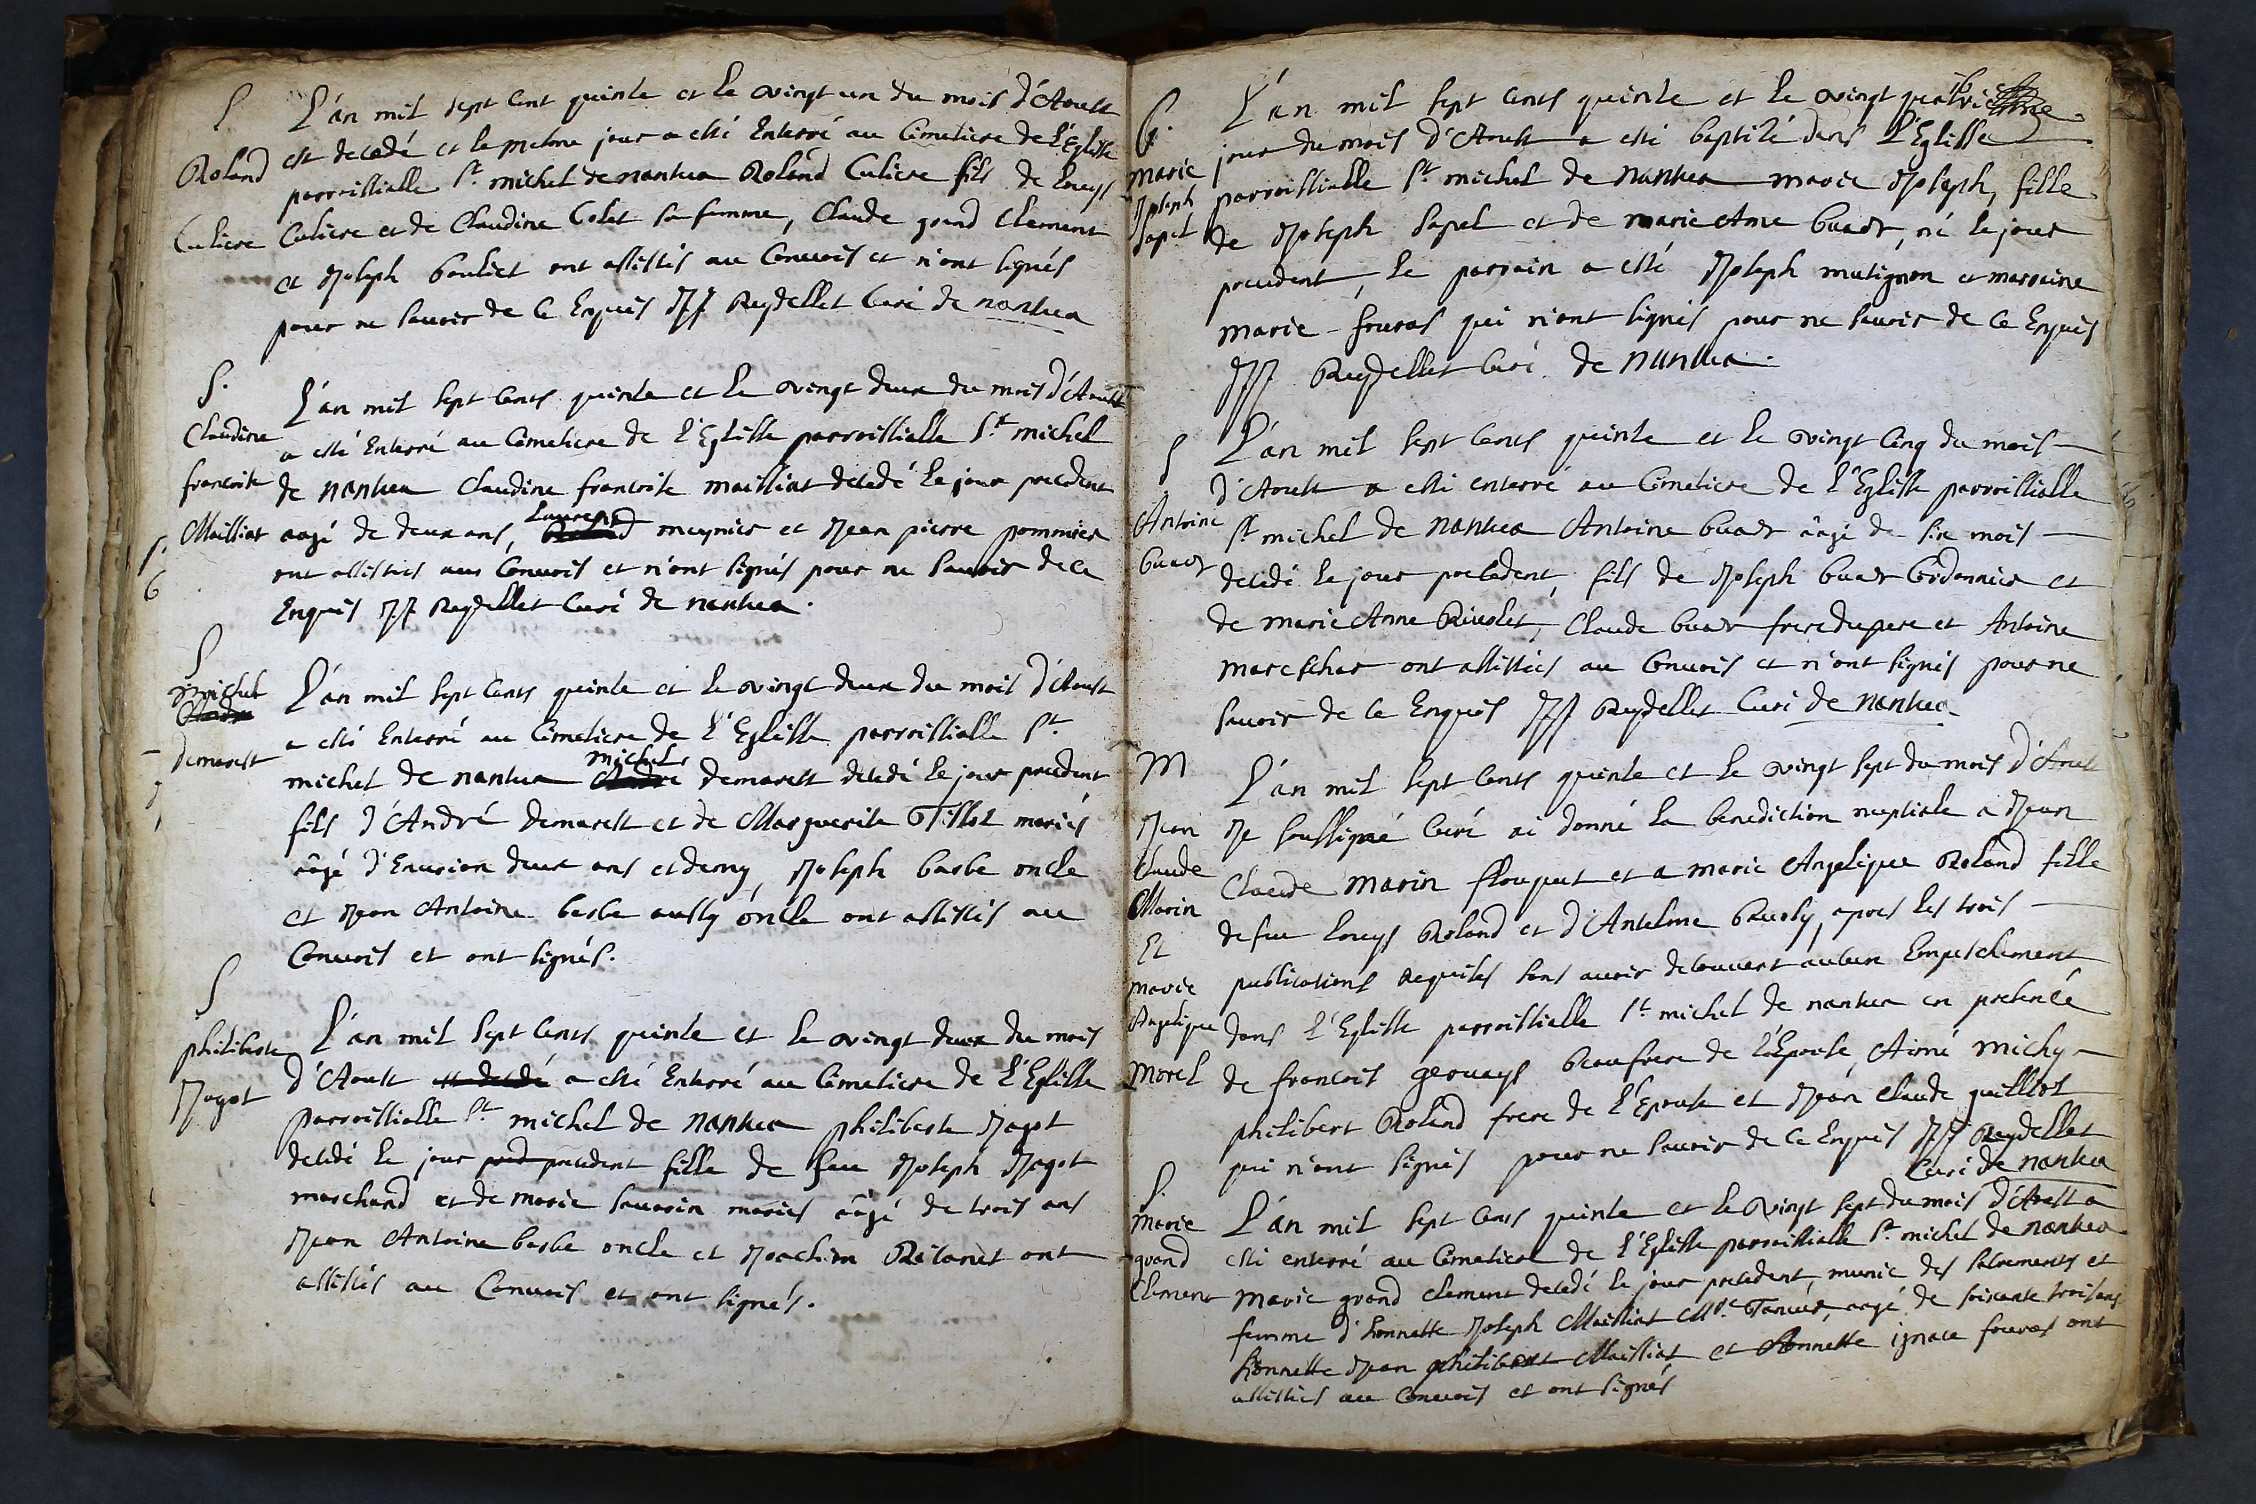 S
Roland
Culiere
L'an mil sept cent quinze et le vingt un du mois d'Aoust
est decedé et le mesme jour a esté Enterré au Cimetiere de l'Eglisse
parroissialle St michel de nantua Roland Culiere fils de Louys
Culiere et de Claudine Colet sa femme, Claude grand Clement
et Joseph bouliet ont assistés au Convois et n'ont signés
pour ne scavoir de ce Enquis JJ Reydellet Curé de nantua
S.
Claudine
francoise
Mailliat
L'an mil sept Cents quinze et le vingt deux du mois d'Aoust
a esté Enterré au Cimetiere de l'Eglisse parroissialle St michel
de nantua Claudine francoise mailliat decedé le jour precedent
aagé de deux ans, Laurens meynier et Jean pierre pommier
ont assistés aus Convois et n'ont signés pour ne scavoir de ce
Enquis JJ Reydellet Curé de nantua.
S
michel
demarest
L'an mil sept Cents quinze et le vingt deux du mois d'Aoust
a esté Enterré au Cimetiere de l'Eglisse parroissialle St
michel de nantua michel demarest decedé le jour precedent
fils d'André demarest et de Marguerite Tissot mariés
aagé d'Environ deux ans et demy, Joseph barbe oncle
et Jean Antoine barbe aussy oncle ont assistés au
Convois et ont signés.
S
philiberte
Jagot
L'an mil sept Cents quinze et le vingt deux du mois
d'Aoust est decedé a esté Enterré au Cimetiere de l'Eglisse
parroissialle St michel de nantua philiberte Jagot
decedé le jour pred precedent fille de feu Joseph Jagot
marchand et de marie savarin mariés aagé de trois ans
Jean Antoine barbe oncle et Joachim ont
assistés au Convois et ont signés.
G.
marie
Joseph
sapel
L'an mil sept Cents quinze et le vingt quatrie
jour du mois d'Aoust a esté baptizé dans l'Eglisse
parroissialle St michel de nantua marie Joseph, fille
de Joseph sapel et de marie Anne buadz, né le jour
precedent, le parrain a esté Joseph mutignon et marraine
marie fouras qui n'ont signés pour ne scavoir de ce Enquis
JJ Reydellet Curé de nantua.
S
Antoine
buadz
L'an mil sept Cents quinze et le vingt Cinq du mois
d'Aoust a esté enterré au Cimetiere de l'Eglisse parroissialle
St michel de nantua Antoine buadz aagé de six mois
decedé le jour precedent, fils de Joseph buadz Cordonnier et
de marie Anne Rivolet, Claude buadz frere du pere et Antoine
mareschar ont assistés au Convois et n'ont signés pour ne
scavoir de ce Enquis JJ Reydellet Curé de nantua
M
Jean
Claude
Marin
Et
marie
Angelique
morel
L'an mil sept Cents quinze et le vingt sept du mois d'Aoust
Je soussigné Curé ai donné la benediction nuptiale a Jean
Claude marin flouput et a marie Angelique Roland fille
de feu Louys Roland et d'Antelme bevoly, apres les trois
publications requises sans avoir decouvert aucun Empeschement
dans l'Eglisse parroissialle St michel de nantua en presence
de francois gervays beaufrere de l'Epouse, Aimé michy
philibert Roland frere de l'Epouse et Jean Claude guilliot
qui n'ont signés pour ne scavoir de ce Enquis JJ Reydellet
Curé de nantua
S.
marie
grand
Clement
L'an mil sept Cens quinze et le vingt sept du mois d'Aoust a
esté enterré au Cimetiere de l'Eglisse parroissialle St michel de nantua
marie grand clement decedé le jour precedent, munie des sacrements et
femme d'honnette Joseph Mailliat Md Taneur, aagé de soixante trois ans
honnette Jean philibert Mailliat et honnette ignace fouras ont
assistés au Convois et ont signés